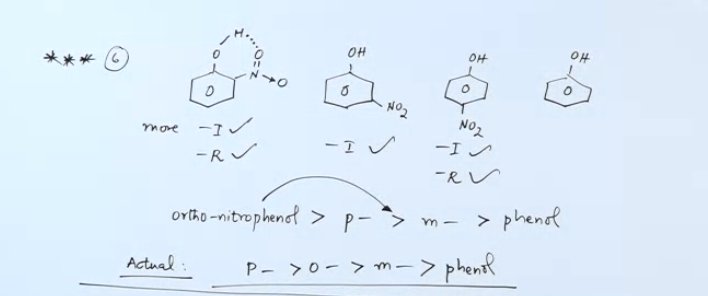 *** 6
H
O O
N→O
OH
NO2
OH
NO2
OH
more -I ✓ -I ✓ -I ✓
-R ✓ -R ✓
ortho-nitrophenol > p- > m- > phenol
Actual: p- > o- > m- > phenol